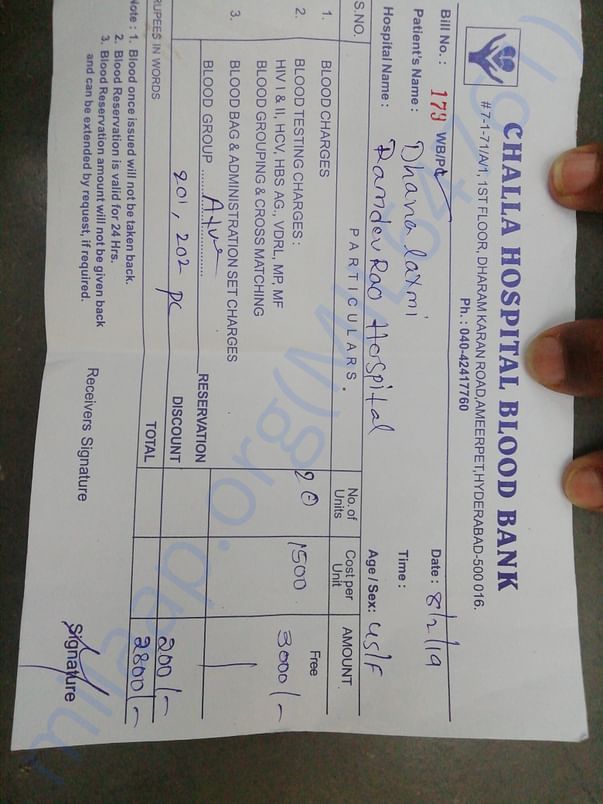 CHALLA HOSPITAL BLOOD BANK
# 7-1-71/A/1, 1ST FLOOR, DHARAM KARAN ROAD, AMEERPET, HYDERABAD-500 016.
Ph. : 040-42417760
Bill No. : 179 WB/PC Date : 8/2/19
Patient's Name : Dhana laxmi Time :
Hospital Name : Ramdev Rao Hospital Age / Sex: 45/F
S.NO. PARTICULARS. No. of Units Cost per Unit AMOUNT
1. BLOOD CHARGES Free
2. BLOOD TESTING CHARGES : 2 1500 3000/-
HIV I & II, HCV, HBS AG., VDRL, MP, MF
BLOOD GROUPING & CROSS MATCHING
3. BLOOD BAG & ADMINISTRATION SET CHARGES
BLOOD GROUP ....A+ve....
RESERVATION
201, 202 PC DISCOUNT 200/-
TOTAL 2800/-
RUPEES IN WORDS
Note : 1. Blood once issued will not be taken back.
2. Blood Reservation is valid for 24 Hrs.
3. Blood Reservation amount will not be given back
and can be extended by request, if required.
Receivers Signature Signature
milaap.org